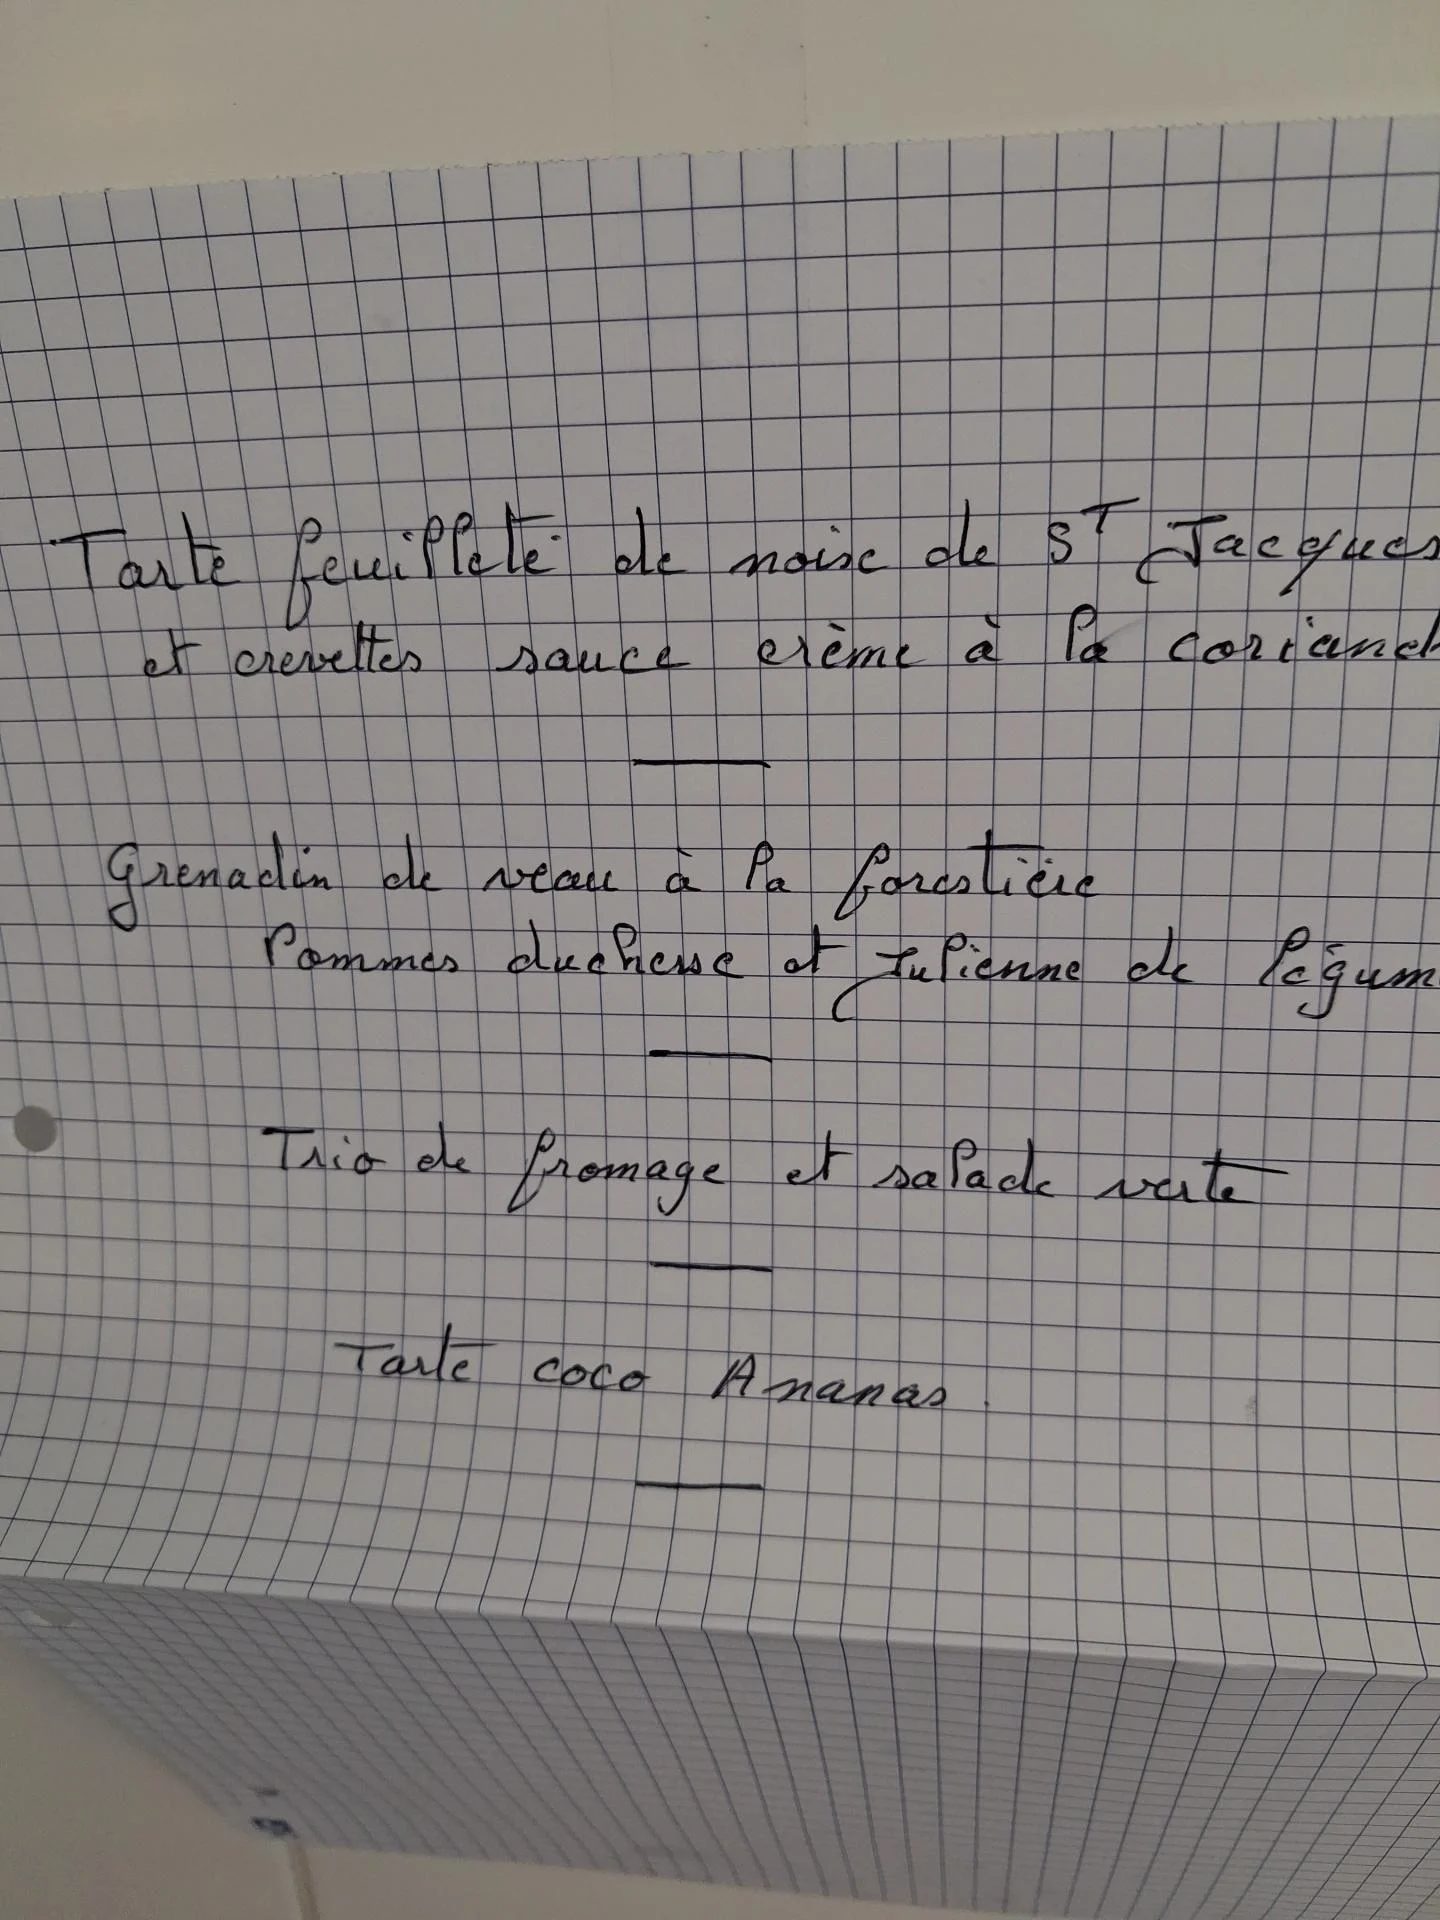 Tarte feuilleté de noise de St Jacques
et crevettes sauce crème à la coriand
Grenadin de veau à la forestière
Pommes duchesse et Julienne de légum
Trio de fromage et salade verte
Tarte coco Ananas.